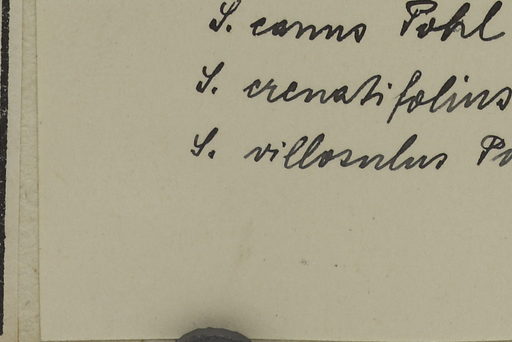 S. canus Pohl
S. crenatifolius
S. villosulus Po